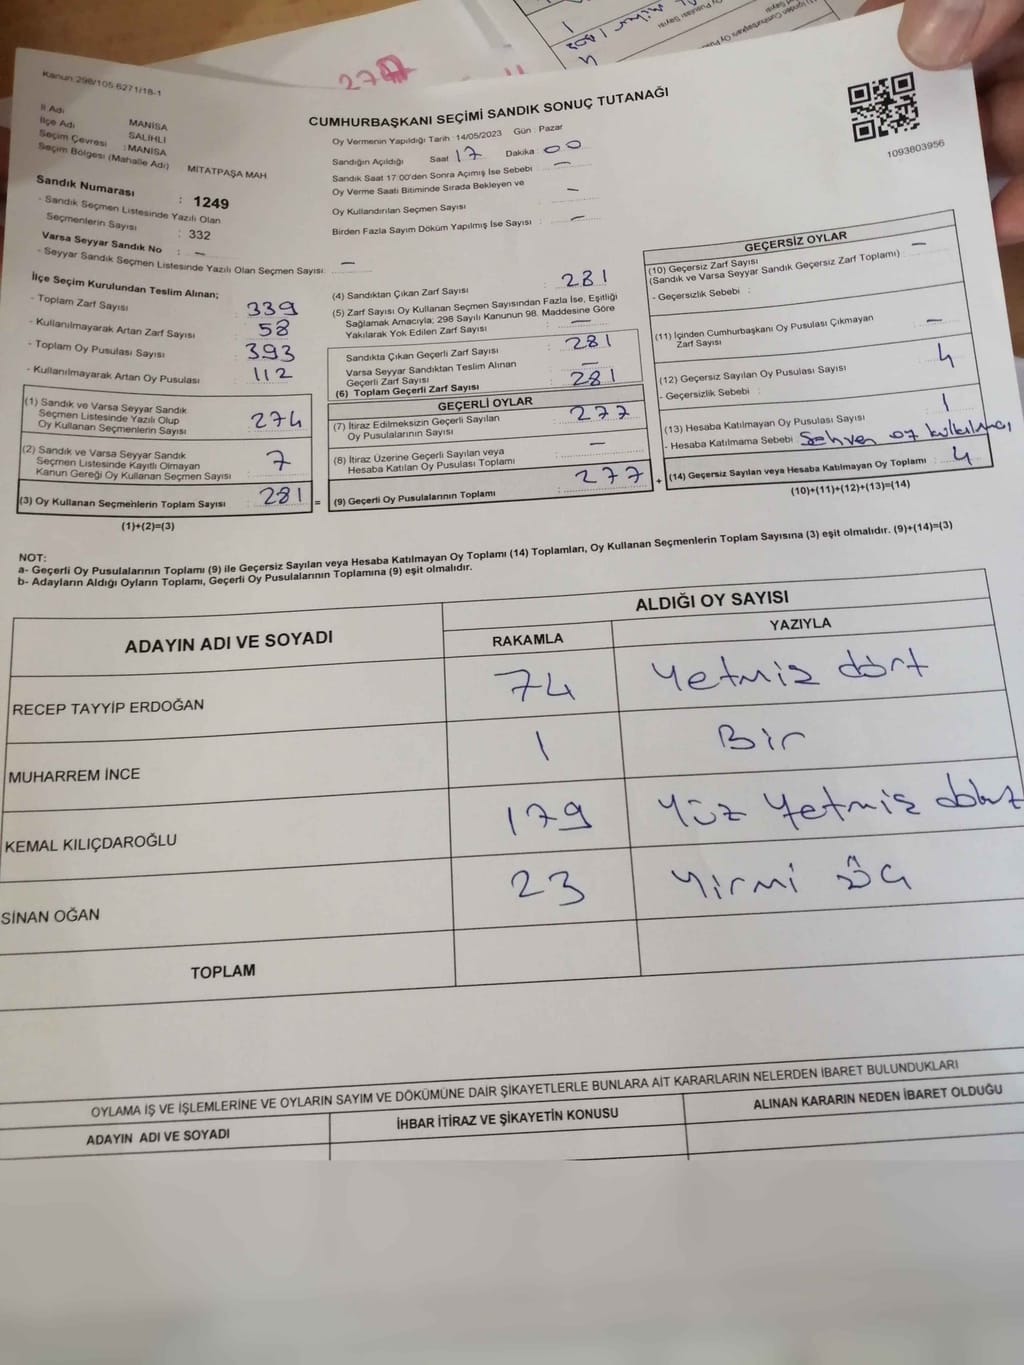 Kanun:298/105 6271/18-1
CUMHURBAŞKANI SEÇİMİ SANDIK SONUÇ TUTANAĞI
1093803956
İl Adı MANİSA
İlçe Adı SALİHLİ
Seçim Çevresi : MANİSA
Seçim Bölgesi (Mahalle Adı) MİTATPAŞA MAH
Sandık Numarası : 1249
- Sandık Seçmen Listesinde Yazılı Olan
Seçmenlerin Sayısı : 332
Varsa Seyyar Sandık No : –
- Seyyar Sandık Seçmen Listesinde Yazılı Olan Seçmen Sayısı: –
Oy Vermenin Yapıldığı Tarih : 14/05/2023 Gün : Pazar
Sandığın Açıldığı Saat 17 Dakika 00
Sandık Saat 17:00'den Sonra Açımış İse Sebebi : –
Oy Verme Saati Bitiminde Sırada Bekleyen ve
Oy Kullandırılan Seçmen Sayısı : –
Birden Fazla Sayım Döküm Yapılmış İse Sayısı : –
İlçe Seçim Kurulundan Teslim Alınan;
- Toplam Zarf Sayısı : 339
- Kullanılmayarak Artan Zarf Sayısı : 58
- Toplam Oy Pusulası Sayısı : 393
- Kullanılmayarak Artan Oy Pusulası : 112
(1) Sandık ve Varsa Seyyar Sandık
Seçmen Listesinde Yazılı Olup
Oy Kullanan Seçmenlerin Sayısı : 274
(2) Sandık ve Varsa Seyyar Sandık
Seçmen Listesinde Kayıtlı Olmayan
Kanun Gereği Oy Kullanan Seçmen Sayısı : 7
(3) Oy Kullanan Seçmenlerin Toplam Sayısı : 281 =
(1)+(2)=(3)
(4) Sandıktan Çıkan Zarf Sayısı : 281
(5) Zarf Sayısı Oy Kullanan Seçmen Sayısından Fazla İse, Eşitliği
Sağlamak Amacıyla; 298 Sayılı Kanunun 98. Maddesine Göre
Yakılarak Yok Edilen Zarf Sayısı : –
Sandıkta Çıkan Geçerli Zarf Sayısı : 281
Varsa Seyyar Sandıktan Teslim Alınan
Geçerli Zarf Sayısı : –
(6) Toplam Geçerli Zarf Sayısı : 281
GEÇERLİ OYLAR
(7) İtiraz Edilmeksizin Geçerli Sayılan
Oy Pusulalarının Sayısı : 277
(8) İtiraz Üzerine Geçerli Sayılan veya
Hesaba Katılan Oy Pusulası Toplamı : –
(9) Geçerli Oy Pusulalarının Toplamı : 277 +
GEÇERSİZ OYLAR
(10) Geçersiz Zarf Sayısı –
(Sandık ve Varsa Seyyar Sandık Geçersiz Zarf Toplamı) :
- Geçersizlik Sebebi :
(11) İçinden Cumhurbaşkanı Oy Pusulası Çıkmayan
Zarf Sayısı : –
(12) Geçersiz Sayılan Oy Pusulası Sayısı : 4
- Geçersizlik Sebebi :
(13) Hesaba Katılmayan Oy Pusulası Sayısı : 1
- Hesaba Katılmama Sebebi : Sehven oy
(14) Geçersiz Sayılan veya Hesaba Katılmayan Oy Toplamı : 4
(10)+(11)+(12)+(13)=(14)
NOT:
a- Geçerli Oy Pusulalarının Toplamı (9) ile Geçersiz Sayılan veya Hesaba Katılmayan Oy Toplamı (14) Toplamları, Oy Kullanan Seçmenlerin Toplam Sayısına (3) eşit olmalıdır. (9)+(14)=(3)
b- Adayların Aldığı Oyların Toplamı, Geçerli Oy Pusulalarının Toplamına (9) eşit olmalıdır.
ADAYIN ADI VE SOYADI
ALDIĞI OY SAYISI
RAKAMLA YAZIYLA
RECEP TAYYİP ERDOĞAN 74 Yetmiş dört
MUHARREM İNCE 1 Bir
KEMAL KILIÇDAROĞLU 179 Yüz Yetmiş dokuz
SİNAN OĞAN 23 Yirmi üç
TOPLAM
OYLAMA İŞ VE İŞLEMLERİNE VE OYLARIN SAYIM VE DÖKÜMÜNE DAİR ŞİKAYETLERLE BUNLARA AİT KARARLARIN NELERDEN İBARET BULUNDUKLARI
ADAYIN ADI VE SOYADI İHBAR İTİRAZ VE ŞİKAYETİN KONUSU ALINAN KARARIN NEDEN İBARET OLDUĞU